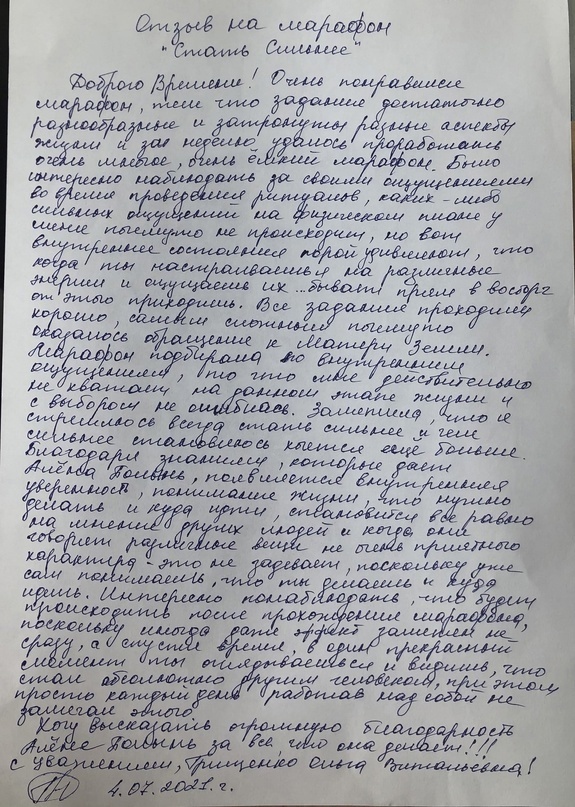 Отзыв на марафон
"Стать Сильнее"
Доброго Времени! Очень понравился
марафон, тем что задание достаточно
разнообразные и затронуты разные аспекты
жизни и за неделю удалось проработать
очень многое, очень ёмкий марафон. Было
интересно наблюдать за своими ощущениями
во время проведения ритуалов, каких-либо
сильных ощущений на физическом плане у
меня почему то не происходит, но вот
внутреннее состояния порой удивляют, что
когда ты настраиваешься на различные
энергии и ощущаешь их ... бывает прям в восторг
от этого приходишь. Все задание проходили
хорошо, самым сложным почему то
оказалось обращение к Матери Земли.
Марафон подбирала по внутренним
ощущениям, то что мне действительно
не хватало на данном этапе жизни и
с выбором не ошиблась. Заметила, что я
стремлюсь всегда стать сильнее и чем
сильнее становлюсь хочется еще больше.
Благодаря знаниям, которые дает
Алёна Полынь, появляется внутренняя
уверенность, понимание жизни, что нужно
делать и куда идти, становится все равно
на мнение других людей и когда они
говорят различные вещи не очень приятного
характера - это не задевает, поскольку уже
сам понимаешь, что ты делаешь и куда
идешь. Интересно понаблюдать, что будет
происходить после прохождения марафона,
поскольку иногда даже эффект заметен не
сразу, а спустя время, в один прекрасный
момент ты оглядываешься и видишь, что
стал абсолютно другим человеком, при этом
просто каждый день работав над собой не
замечал этого.
Хочу высказать огромную благодарность
Алёне Полынь за все что она делает!!!
с уважением, Грищенко Ольга Витальевна!
4.07.2021 г.